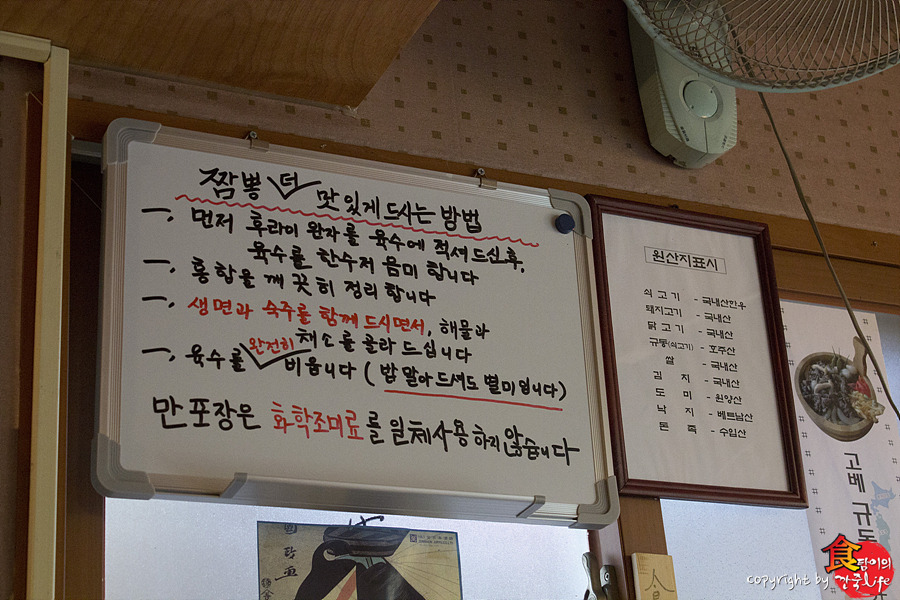 짬뽕 더 맛있게 드시는 방법
一, 먼저 후라이 완자를 육수에 적셔 드신후,
육수를 한수저 음미 합니다
一, 홍합을 깨끗히 정리합니다
一, 생면과 숙주를 함께 드시면서, 해물과
채소를 골라 드십니다
一, 육수를 완전히 비웁니다 (밥 말아 드셔도 별미 입니다)
만포장은 화학조미료를 일체 사용하지 않습니다
원산지표시
쇠고기 - 국내산한우
돼지고기 - 국내산
닭고기 - 국내산
규동(쇠고기) - 호주산
쌀 - 국내산
김치 - 국내산
도미 - 원양산
낙지 - 베트남산
돈족 - 수입산
고베 규동
食
담이의
간죽life
copyright by